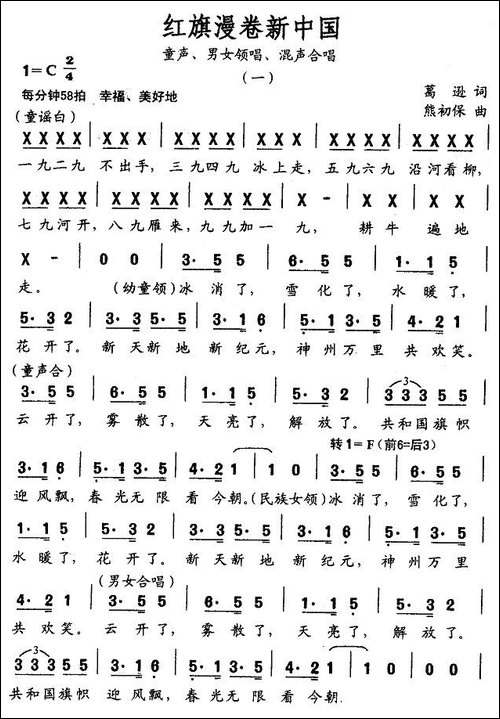 红旗漫卷新中国
童声、男女领唱、混声合唱
1=C 2/4
(一)
每分钟58拍 幸福、美好地
葛逊 词
熊初保 曲
(童谣白)
X X X X | X X X X | X X X X | X X X X | X X X X | X X X X |
一九二九 不出手, 三九四九 冰上走, 五九六九 沿河看柳,
X X X X | X X X X | X X X X | X - | X X | X X |
七九河开, 八九雁来, 九九加一 九, 耕牛 遍地
X - | 0 0 | 3· 5 5 | 6· 5 5 | 1· 1 5 |
走。 (幼童领)冰消了, 雪化了, 水暖了,
5· 3 2 | 3· 5 5 5 | 3· 1 6 | 5· 1 3· 5 | 4· 2 1 |
花开了。新天新地 新纪元, 神州万里 共欢笑。
(童声合)
3· 5 5 | 6· 5 5 | 1· 1 5 | 5· 3 2 | 3 3 3 5 5 |
云开了, 雾散了, 天亮了, 解放了。共和国旗帜
转1=F(前6=后3)
3· 1 6 | 5· 1 3 5 | 4· 2 1 | 1 0 | 3· 5 5 | 6· 5 5 |
迎风飘, 春光无限 看今朝。(民族女领)冰消了, 雪化了,
1· 1 5 | 5· 3 2 | 3· 5 5 5 | 3· 1 6 | 5· 1 3· 5 |
水暖了, 花开了。 新天新地 新纪元, 神州万里
(男女合唱)
4· 2 1 | 3· 5 5 | 6· 5 5 | 1· 1 5 | 5· 3 2 |
共欢笑。 云开了, 雾散了, 天亮了, 解放了。
3 3 3 5 5 | 3· 1 6 | 5· 1 3· 5 | 4· 2 1 | 1 0 | 0 0 |
共和国旗帜 迎风飘, 春光无限 看今朝.